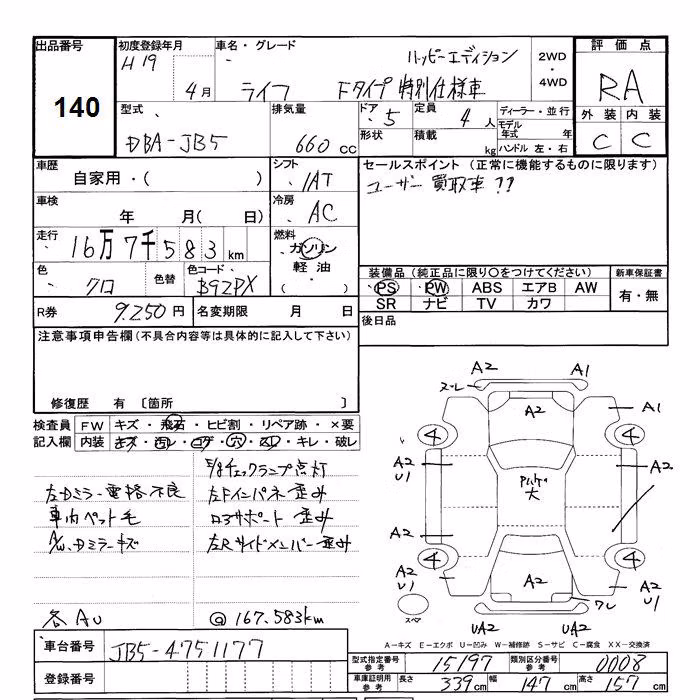 出品番号 初度登録年月 車名・グレード 評価点
140
H19 4月
ライフ Fタイプ 特別仕様車
ハッピーエディション
2WD・4WD
RA
外装 内装
C C
型式 排気量 ドア 定員 ディーラー・並行
DBA-JB5 660cc 5 4人
形状 積載 kg モデル年式 年
ハンドル 左・右
車歴 シフト セールスポイント (正常に機能するものに限ります)
自家用・( ) IAT ユーザー買取車??
車検 冷房
年 月( 日) AC
走行 燃料
16万7千583km ガソリン・軽油・( )
色 色替 色コード
クロ B92PX
装備品 (純正品に限り○をつけてください) 新車保証書
PS PW ABS エアB AW 有・無
SR ナビ TV カワ
R券 9.250円 名変期限 月 日
後日品
注意事項申告欄(不具合内容等は具体的に記入して下さい)
修復歴 有 〔箇所 〕
検査員記入欄 FW キズ・飛石・ヒビ割・リペア跡・×要
内装 キズ・汚レ・コゲ・穴・スレ・キレ・破レ
S/Bチェックランプ点灯
左Dミラー電格不良 左Fインパネ歪み
車内ペット毛 ロアサポート歪み
A/W.Dミラーキズ 左Rサイドメンバー歪み
各AU @167.583km
A2 A1
ズレ
A2 A1
4 4
A2 U1 A2
大
A2
4 4
A2 U1 A2 A2 U1
ワレ
スペア UA2 UA2
A-キズ E-エクボ U-凹み W-補修跡 S-サビ C-腐食 XX-交換済
車台番号 JB5-4751177
登録番号
型式指定番号 参考 15197 類別区分番号 参考 0008
車庫証明用 参考 長さ 339cm 幅 147cm 高さ 157cm